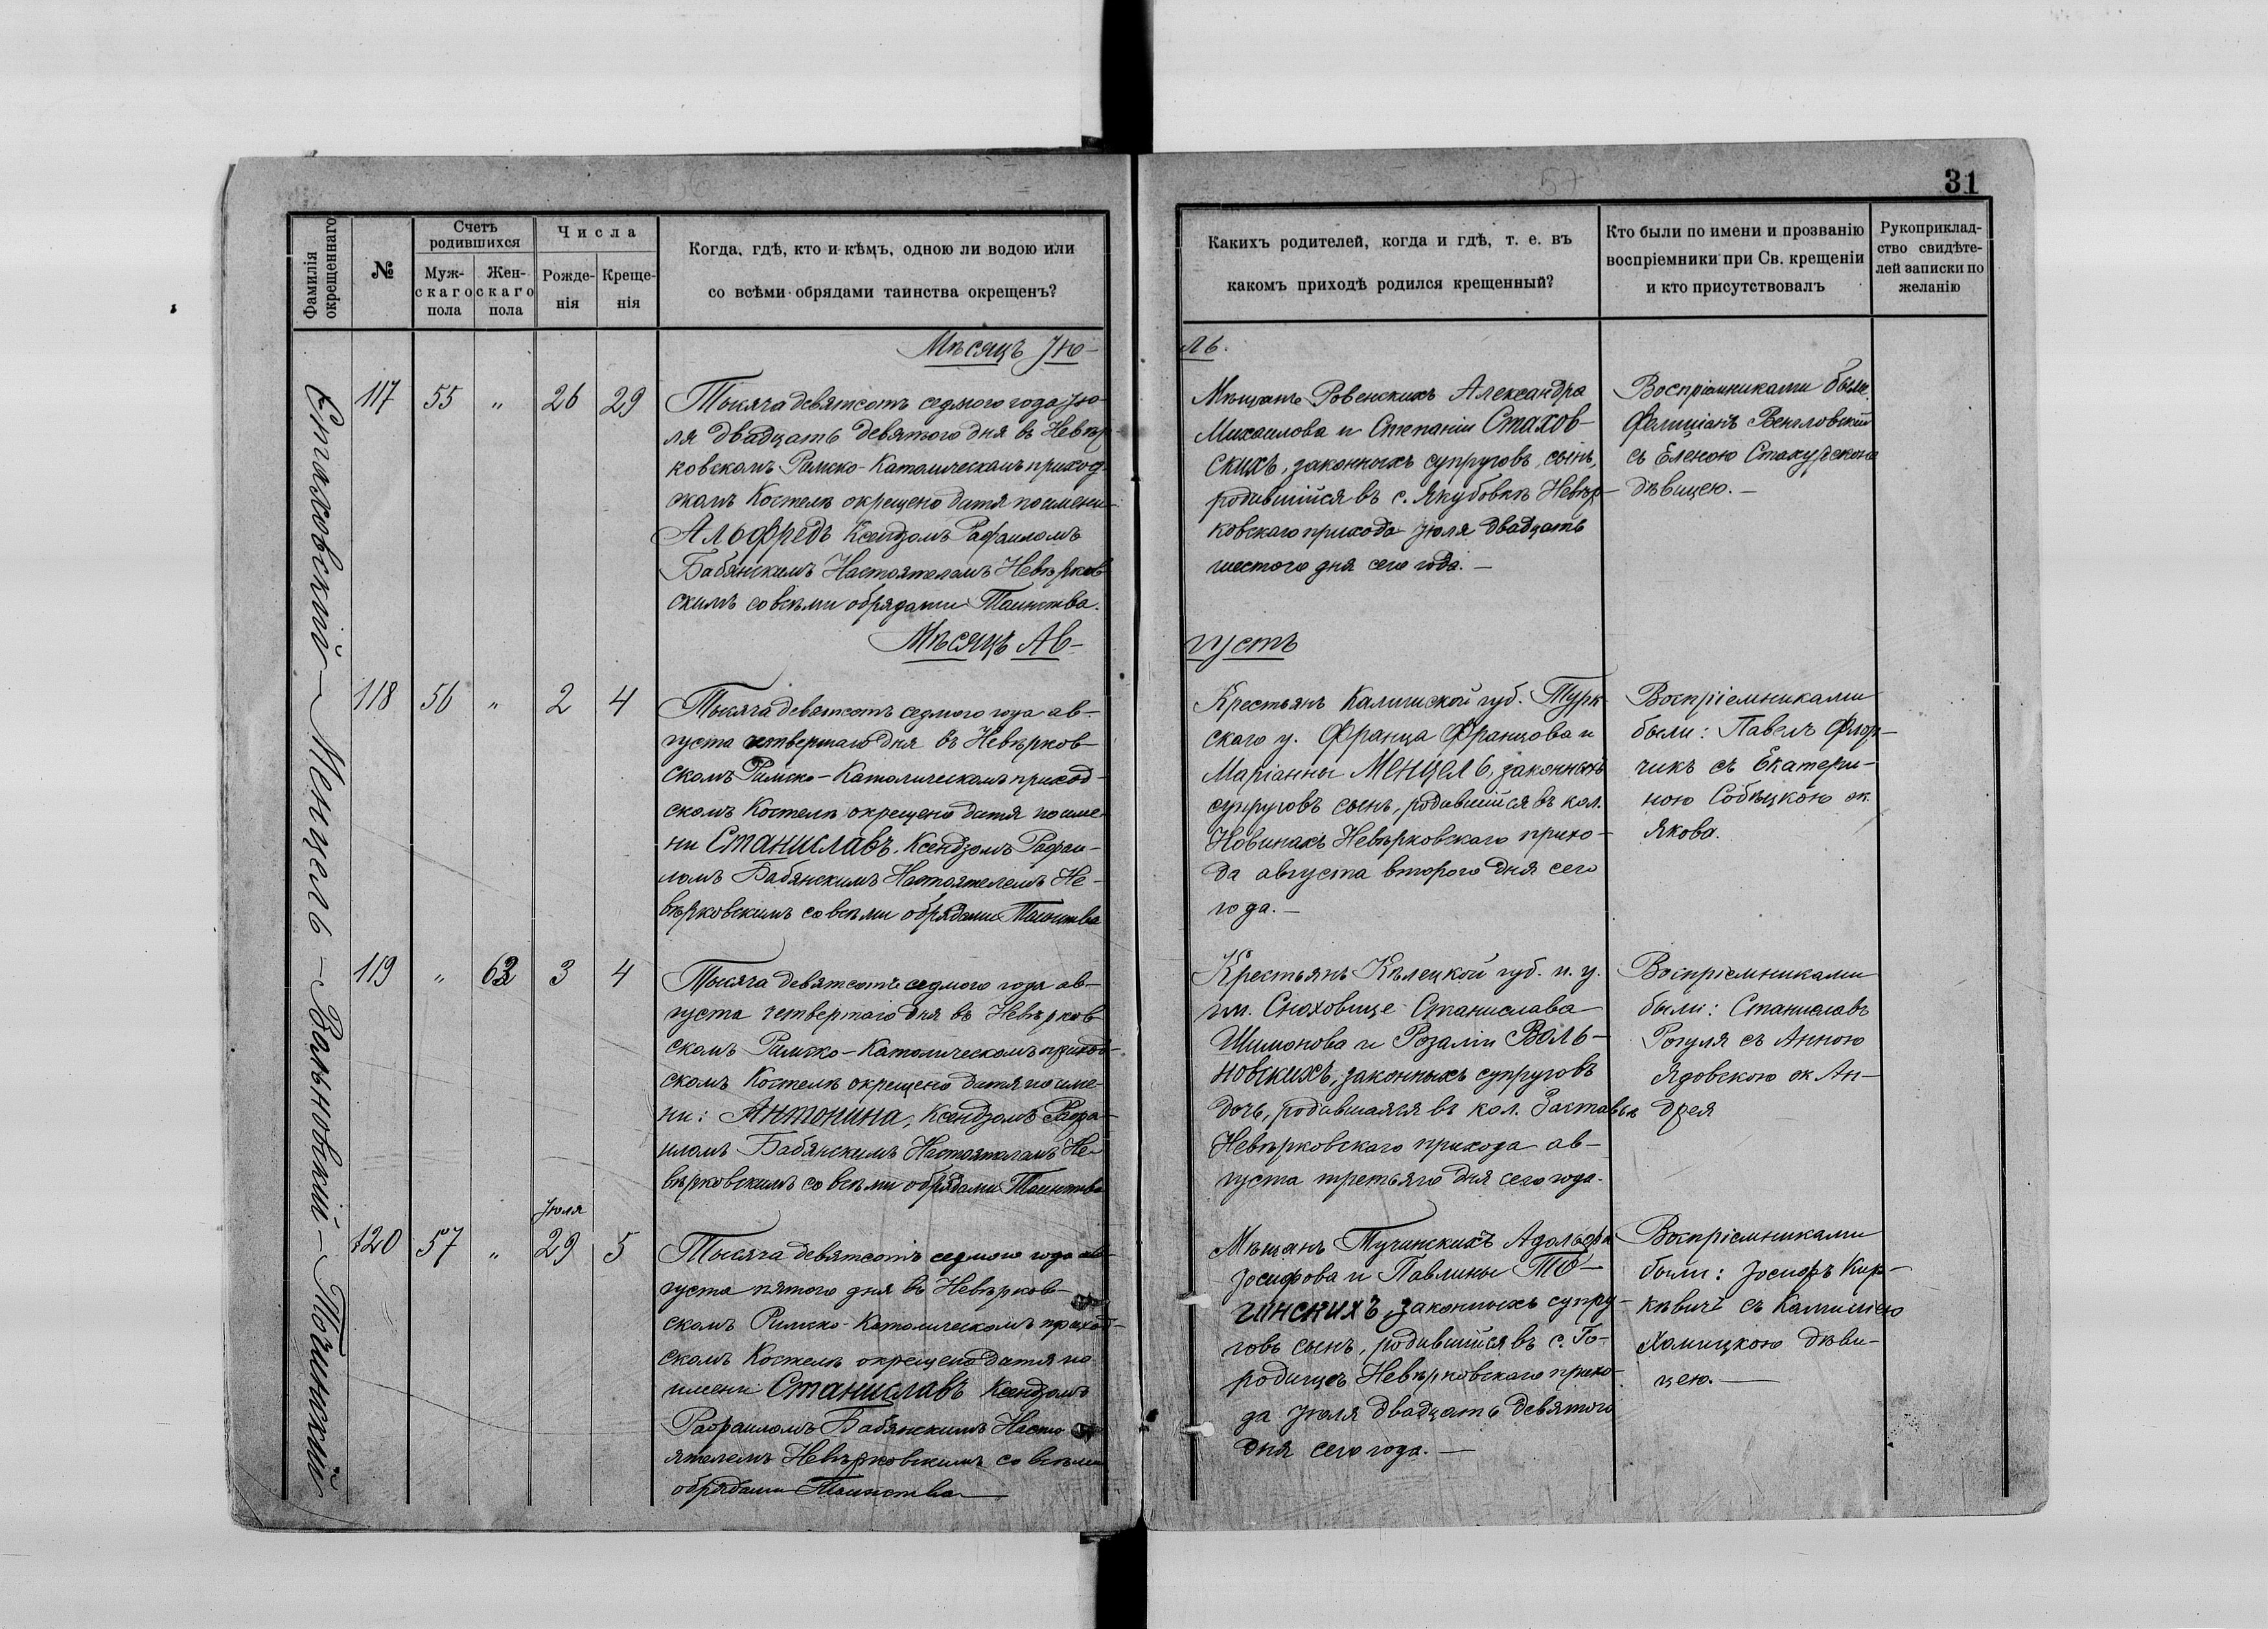 31
Фамилія окрещеннаго
№
Счетъ родившихся
Мужскаго пола
Женскаго пола
Числа
Рожденія
Крещенія
Когда, гдѣ, кто и кѣмъ, одною ли водою или
со всѣми обрядами таинства окрещенъ?
Какихъ родителей, когда и гдѣ, т. е. въ
какомъ приходѣ родился крещенный?
Кто были по имени и прозванію
воспріемники при Св. крещеніи
и кто присутствовалъ
Рукоприклад-
ство свидѣте-
лей записки по
желанію
Стаховскій – Менцель – Вальновскій –
Мѣсяцъ Ію-
ль.
117 55 " 26 29
Тысяча девятсотъ седмого года Ію-
ля двадцать девятого дня въ Невѣр
ковскомъ Римско-Католическомъ приход
скомъ Костелѣ окрещено дитя по имени
Альфредъ Ксендзомъ Рафаиломъ
Бабянскимъ Настоятелемъ Невѣрков
скимъ со всѣми обрядами Таинства.
Мѣщанъ Ровенскихъ Александра
Михаилова и Степаніи Стахов-
скихъ, законныхъ супруговъ, сынъ,
родившійся въ с. Якубовкѣ Невѣр-
ковскаго прихода Іюля двадцать
шестого дня сего года. –
Воспріемниками были
Фелиціанъ Венгловскій
съ Еленою
дѣвицею. –
Мѣсяцъ Ав-
густъ
118 56 " 2 4
Тысяча девятсотъ седмого года ав-
густа четвертаго дня въ Невѣрков-
скомъ Римско-Католическомъ приход-
скомъ Костелѣ окрещено дитя по име-
ни Станиславъ, Ксендзомъ Рафаи-
ломъ Бабянскимъ Настоятелемъ Не-
вѣрковскимъ со всѣми обрядами Таинства
Крестьянъ Калишской губ. Турк
скаго у. Франца Францова и
Маріанны Менцель, законныхъ
супруговъ сынъ, родившійся въ кол.
Новинахъ Невѣрковскаго прихо-
да августа второго дня сего
года. –
Воспріемниками
были: Павелъ Флор-
чикъ съ Екатери-
ною Собѣцкою ж.
Якова.
119 " 63 3 4
Тысяча девятсотъ седмого года ав-
густа четвертаго дня въ Невѣрков
скомъ Римско-Католическомъ приход-
скомъ Костелѣ окрещено дитя по име-
ни: Антонина, Ксендзомъ Рафа-
иломъ Бабянскимъ Настоятелемъ Не-
вѣрковскимъ со всѣми обрядами Таинства
Крестьянъ Кѣлецкой губ. и. у.
гм. Сноховице Станислава
Шимонова и Розаліи Валь-
новскихъ, законныхъ супруговъ
дочь, родившаяся въ кол. Заставье
Невѣрковскаго прихода ав-
густа третьяго дня сего года.
Воспріемниками
были: Станиславъ
Рогуля съ Анною
Ядовскою ж Ан-
дрея
Іюля
120 57 " 29 5
Тысяча девятсотъ седмого года ав-
густа пятого дня въ Невѣрков-
скомъ Римско-Католическомъ приход-
скомъ Костелѣ окрещено дитя по
имени Станиславъ Ксендзомъ
Рафаиломъ Бабянскимъ Насто
ятелемъ Невѣрковскимъ со всѣми
обрядами Таинства
Мѣщанъ Тучинскихъ Адольфа
Іосифова и Павлины
законныхъ супру-
говъ сынъ, родившійся въ с. Го-
родищѣ Невѣрковскаго прихо-
да Іюля двадцать девятого
дня сего года. –
Воспріемниками
были: Іосифъ
съ Камиліею
Хомицкою дѣви-
цею. –